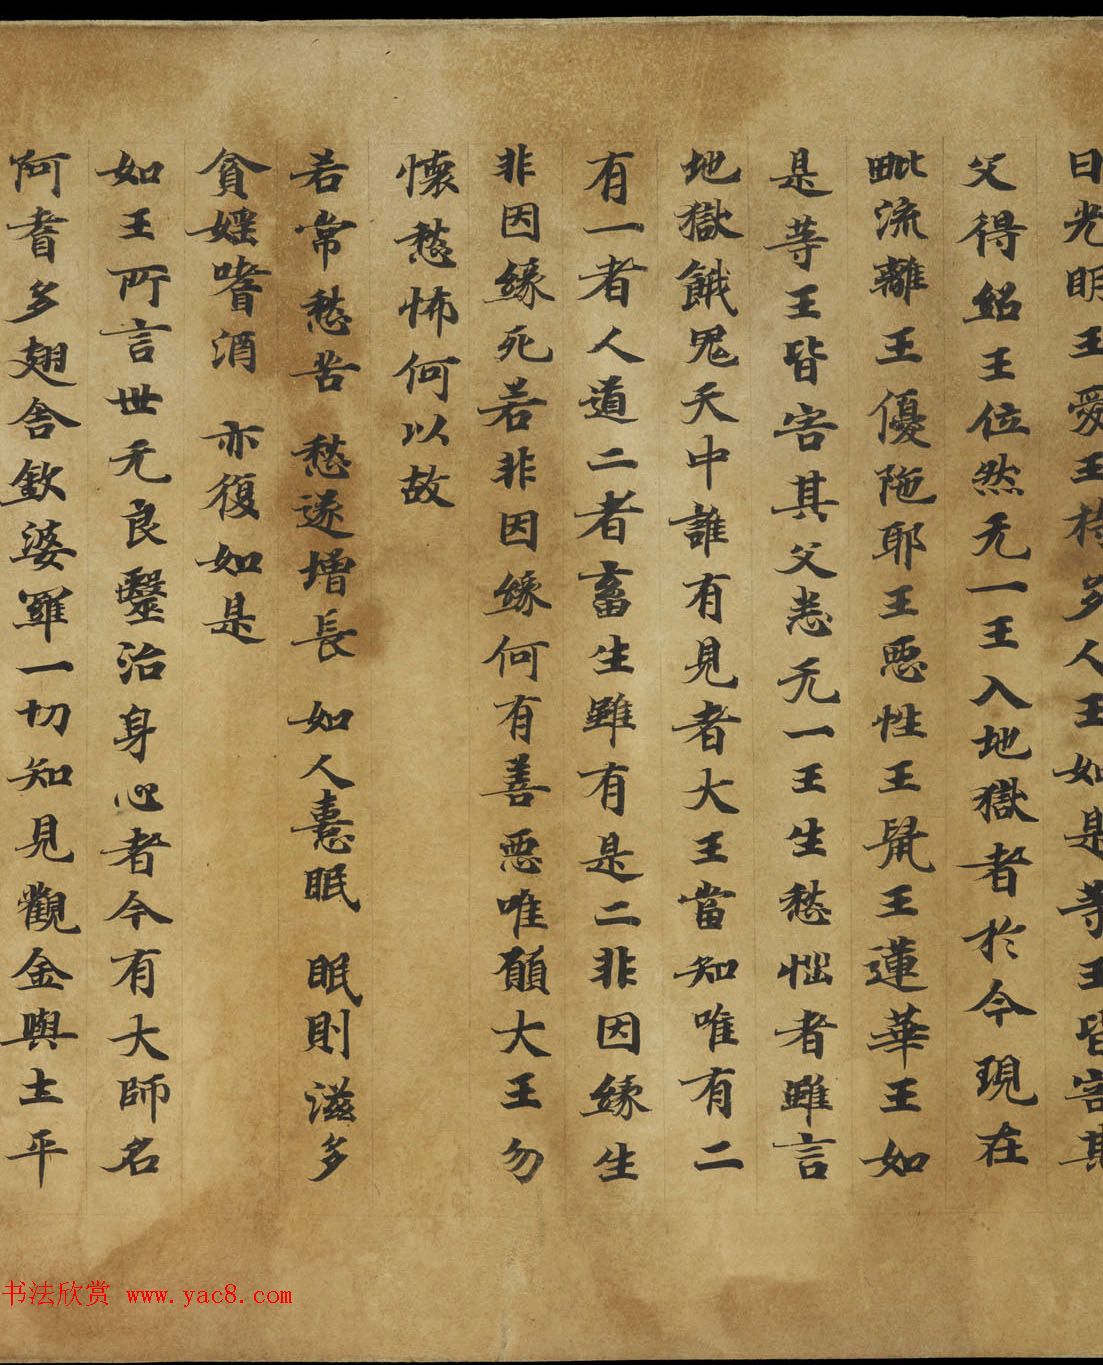 日光明王愛王持多人王如是等王皆害其
父得紹王位然无一王入地獄者於今現在
毗流離王優陁耶王惡性王䑕王蓮華王如
是等王皆害其父悉无一王生愁惱者雖言
地獄餓鬼天中誰有見者大王當知唯有二
有一者人道二者畜生雖有是二非因緣生
非因緣死若非因緣何有善惡唯願大王勿
懷愁怖何以故
若常愁苦 愁遂增長 如人憙眠 眠則滋多
貪婬嗜酒 亦復如是
如王所言世无良毉治身心者今有大師名
阿耆多翅舍欽婆羅一切知見觀金與土平
书法欣赏 www.yac8.com